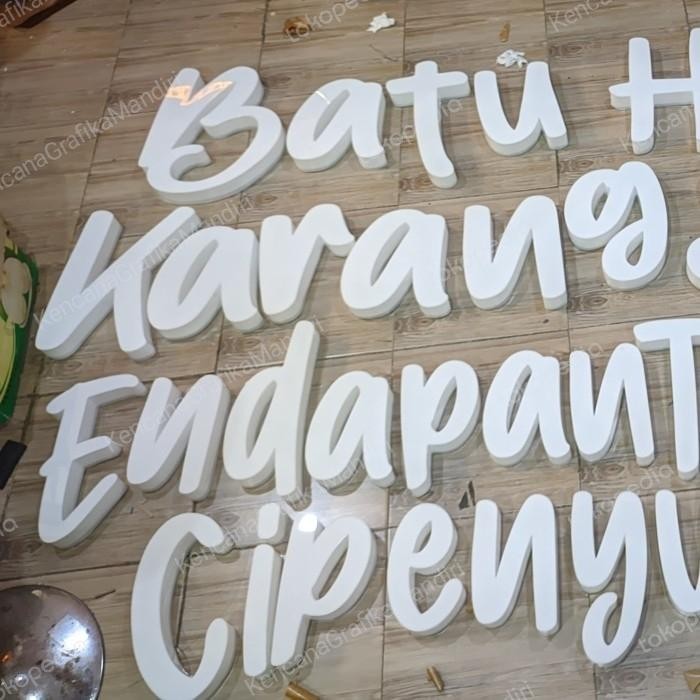 Batu H
Karang
Endapan T
Cipeny
KencanaGrafikaMandiri
tokopedia